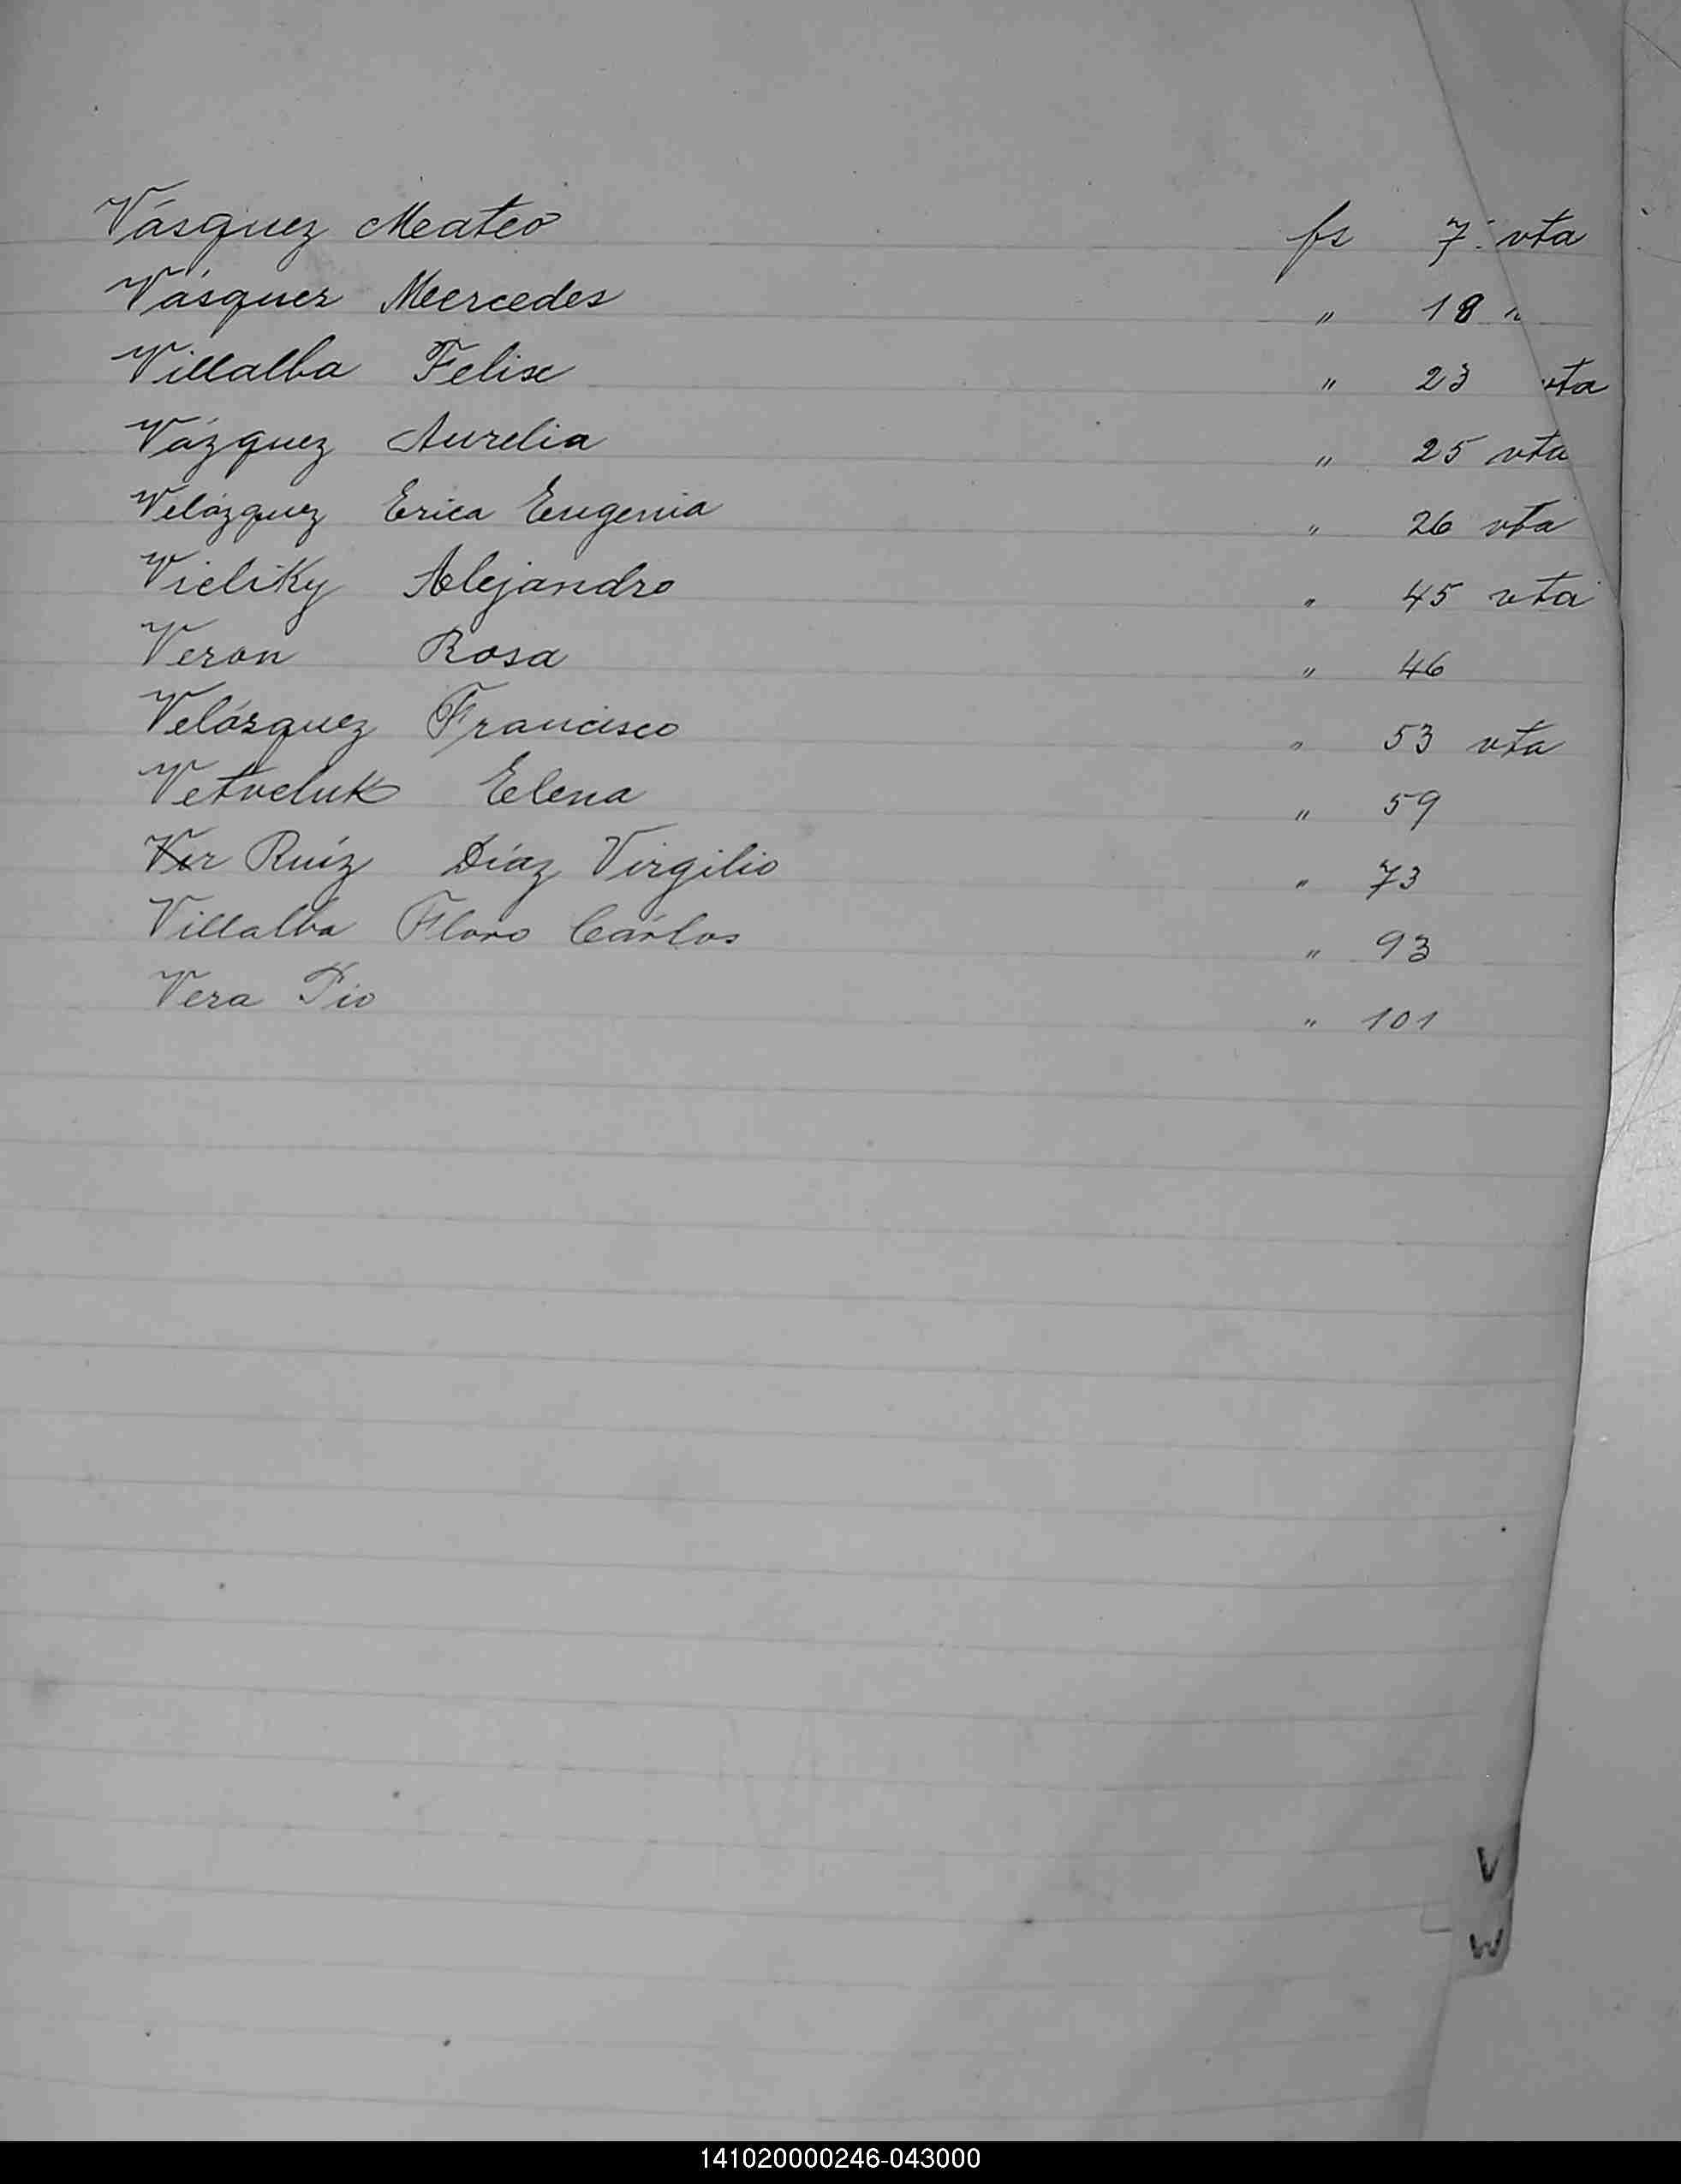 Vásquez Mateo fs 7 vta
Vásquez Mercedes " 18 "
Villalba Felix " 23 vta
Vázquez Aurelia " 25 vta
Velázquez Erica Eugenia " 26 vta
Vieliky Alejandro " 45 vta
Veron Rosa " 46
Velásquez Francisco " 53 vta
Vetveluk Elena " 59
Ver Ruíz Díaz Virgilio " 73
Villalba Floro Cárlos " 93
Vera Pio " 101
V
W
141020000246-043000